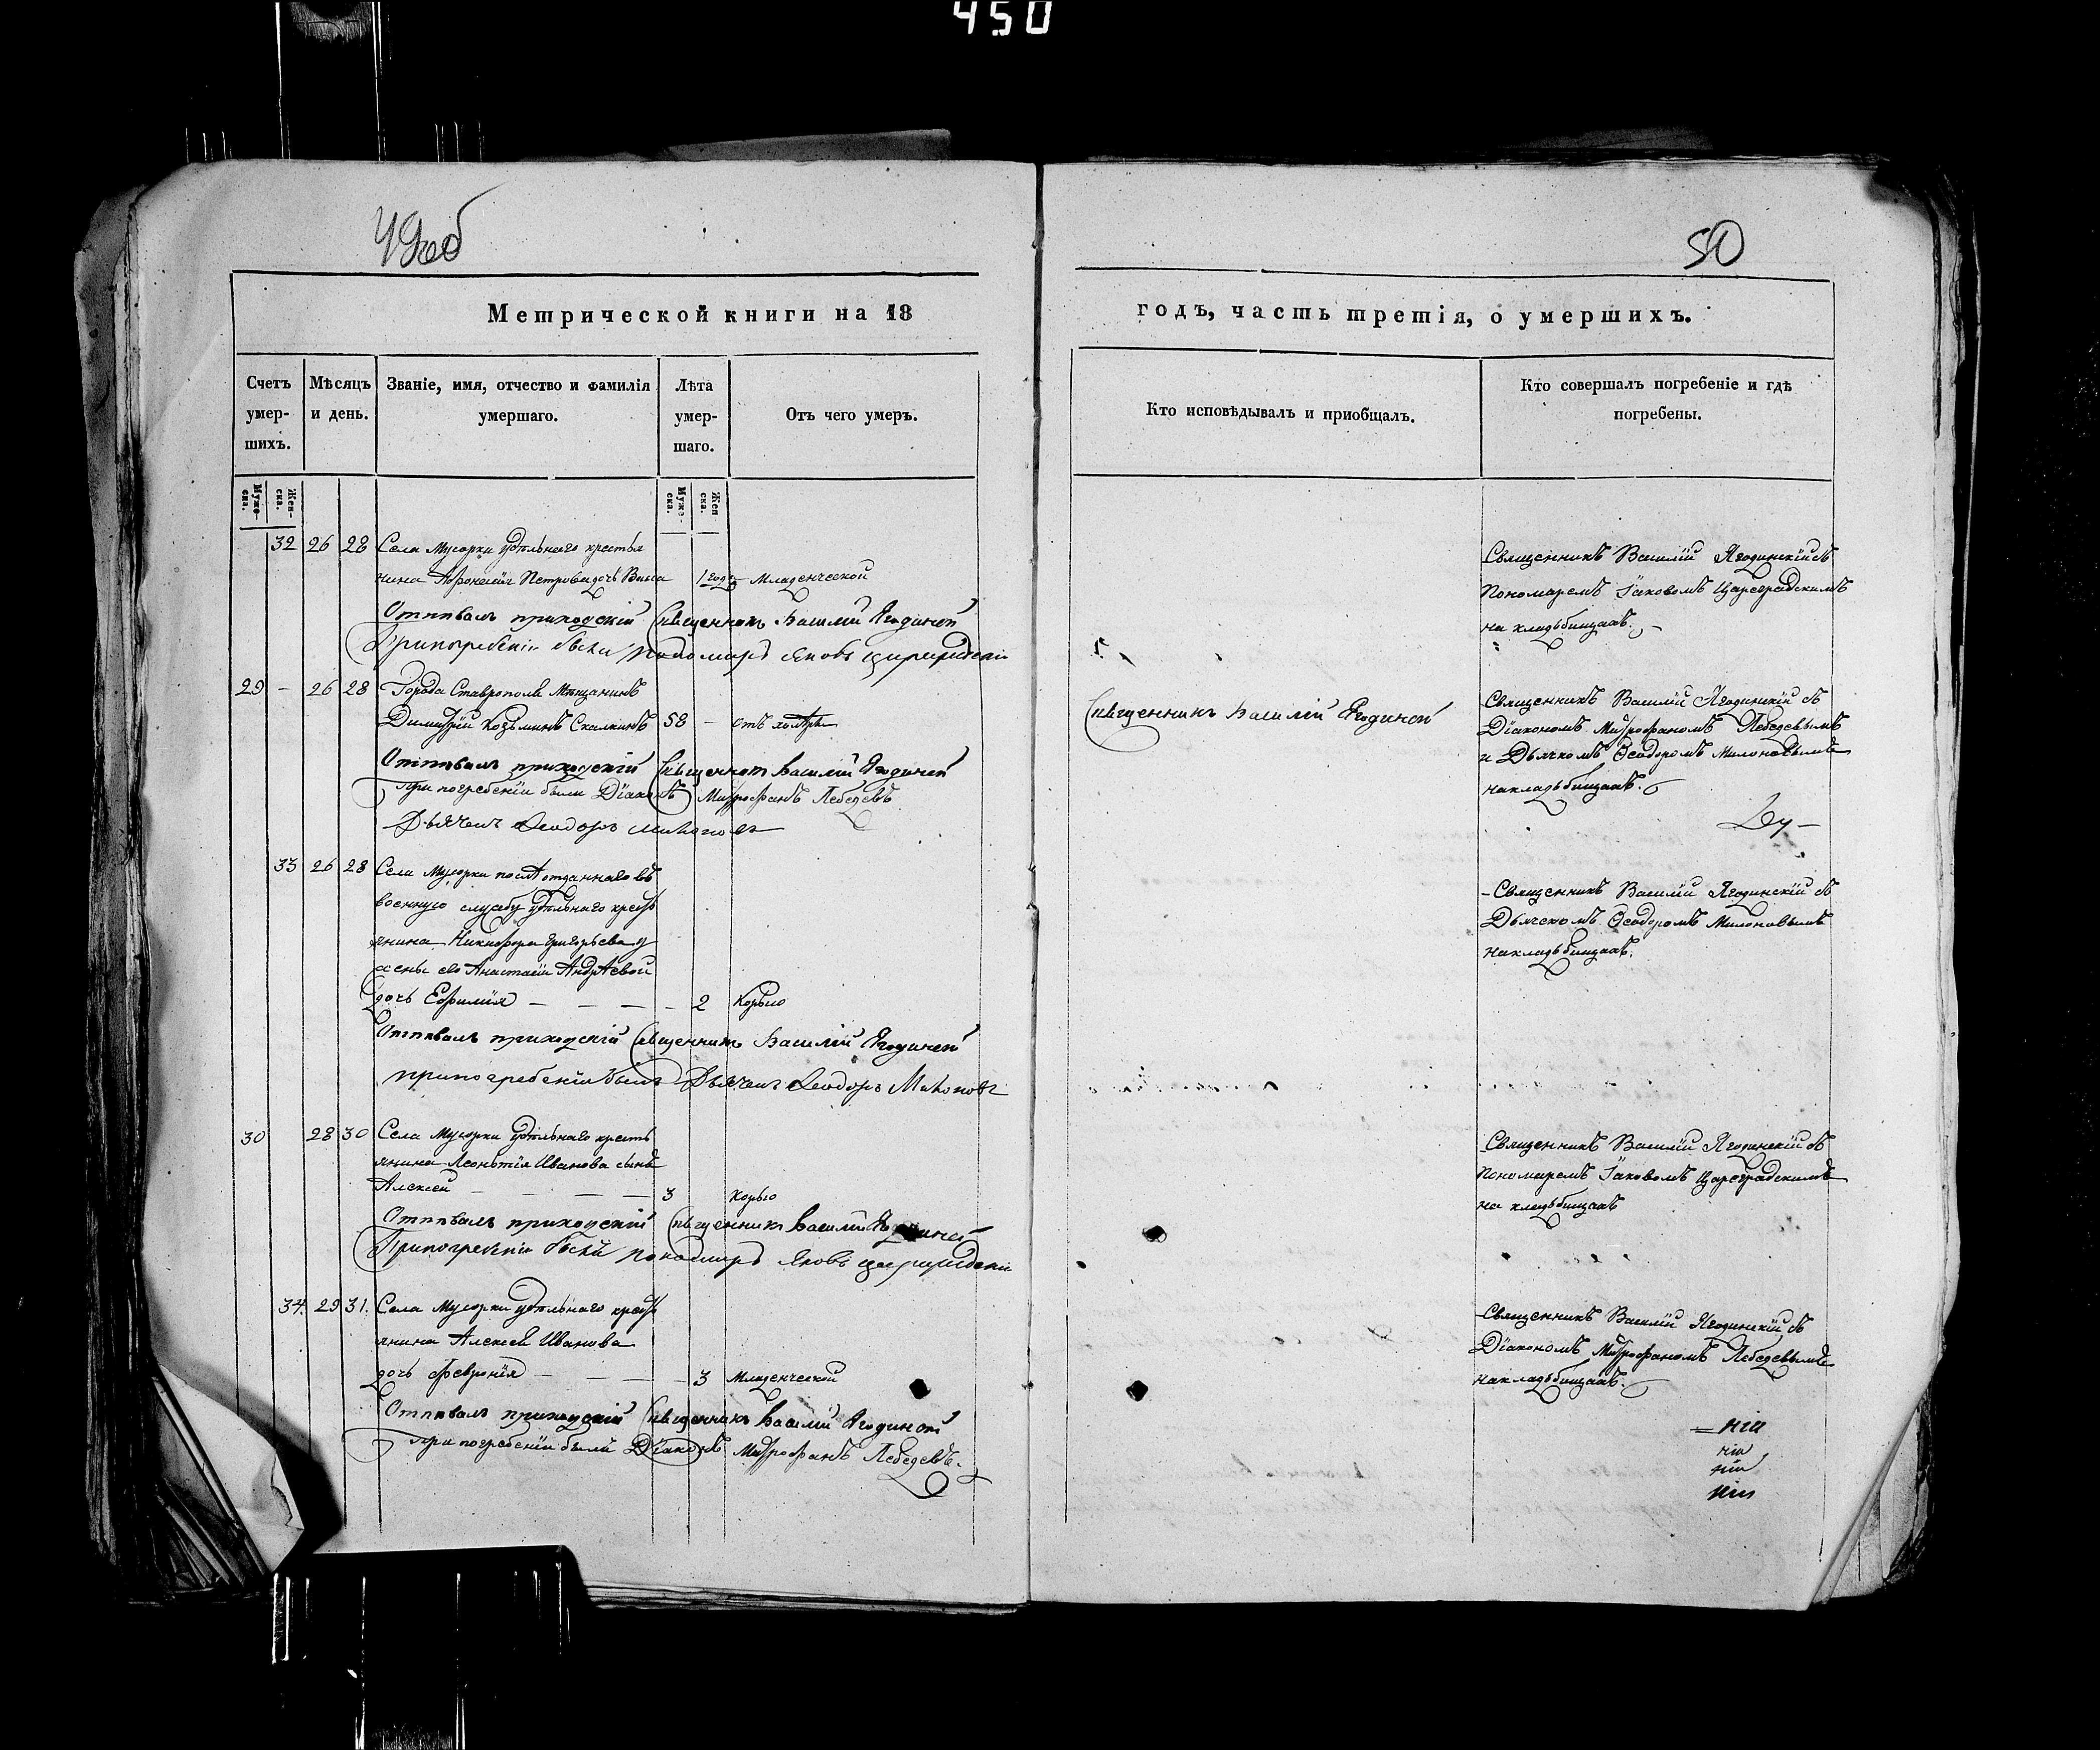 450
49об
50
Метрической книги на 18
годъ, часть третія, о умершихъ.
Счетъ умер-шихъ.
Мѣсяцъ и день.
Званіе, имя, отчество и фамилія умершаго.
Лѣта умер-шаго.
Отъ чего умеръ.
Кто исповѣдывалъ и пріобщалъ.
Кто совершалъ погребеніе и гдѣ погребены.
Муже-ска.
Жен-ска.
Муже-ска.
Жен-ска.
32 26 28 Села Мусорки удѣльнаго крестья
нина Афонасія Петрова дочь 1 годъ Младенческой
Отпѣвалъ приходскій Священникъ Василій Ягодинск
При погребеніи были пономарь Яковъ Цареградскій
Священникъ Василій Ягодинскій съ
Пономаремъ Іаковомъ Цареградскимъ
на кладьбищахъ.
29 — 26 28 Города Ставрополя Мѣщанинъ
Димитрій Козьминъ Скалкинъ 58 — отъ холеры
Отпѣвалъ приходскій Священникъ Василій Ягодинск
При погребеніи были Діаконъ Митрофанъ Лебедевъ
Дьячекъ Феодоръ Милоновъ
Священникъ Василій Ягодинск
Священникъ Василій Ягодинскій съ
Діакономъ Митрофаномъ Лебедевымъ
и Дьячкомъ Ѳеодоромъ Милоновымъ
на кладьбищахъ.
33 26 28 Села Мусорки послѣ отданнаго въ
военную службу удѣльнаго кресть
янина Никифора Григорьева у
жены его Анастасіи Андрѣевой
дочь Ефимія — — — — 2 Корью
Отпѣвалъ приходскій Священникъ Василій Ягодинск
при погребеніи былъ Дьячекъ Феодоръ Милоновъ
Священникъ Василій Ягодинскій съ
Дьячекомъ Ѳеодоромъ Милоновымъ
на кладьбищахъ.
30 28 30 Села Мусорки удѣльнаго кресть
янина Леонтія Иванова сынъ
Алексей — — — — 3 Корью
Отпѣвалъ приходскій Священникъ Василій
При погребеніи были пономарь Яковъ Цареградскій
Священникъ Василій Ягодинскій съ
Пономаремъ Іаковомъ Цареградскимъ
на кладьбищахъ
34. 29 31. Села Мусорки удѣльнаго кресть
янина Алексея Иванова
дочь Февронія — — — — 3 Младенческой
Отпѣвалъ приходскій Священникъ Василій Ягодинск
При погребеніи былъ Діаконъ Митрофанъ Лебедевъ.
Священникъ Василій Ягодинскій съ
Діакономъ Митрофаномъ Лебедевымъ
на кладьбищахъ.
нія
нія
нія
нія